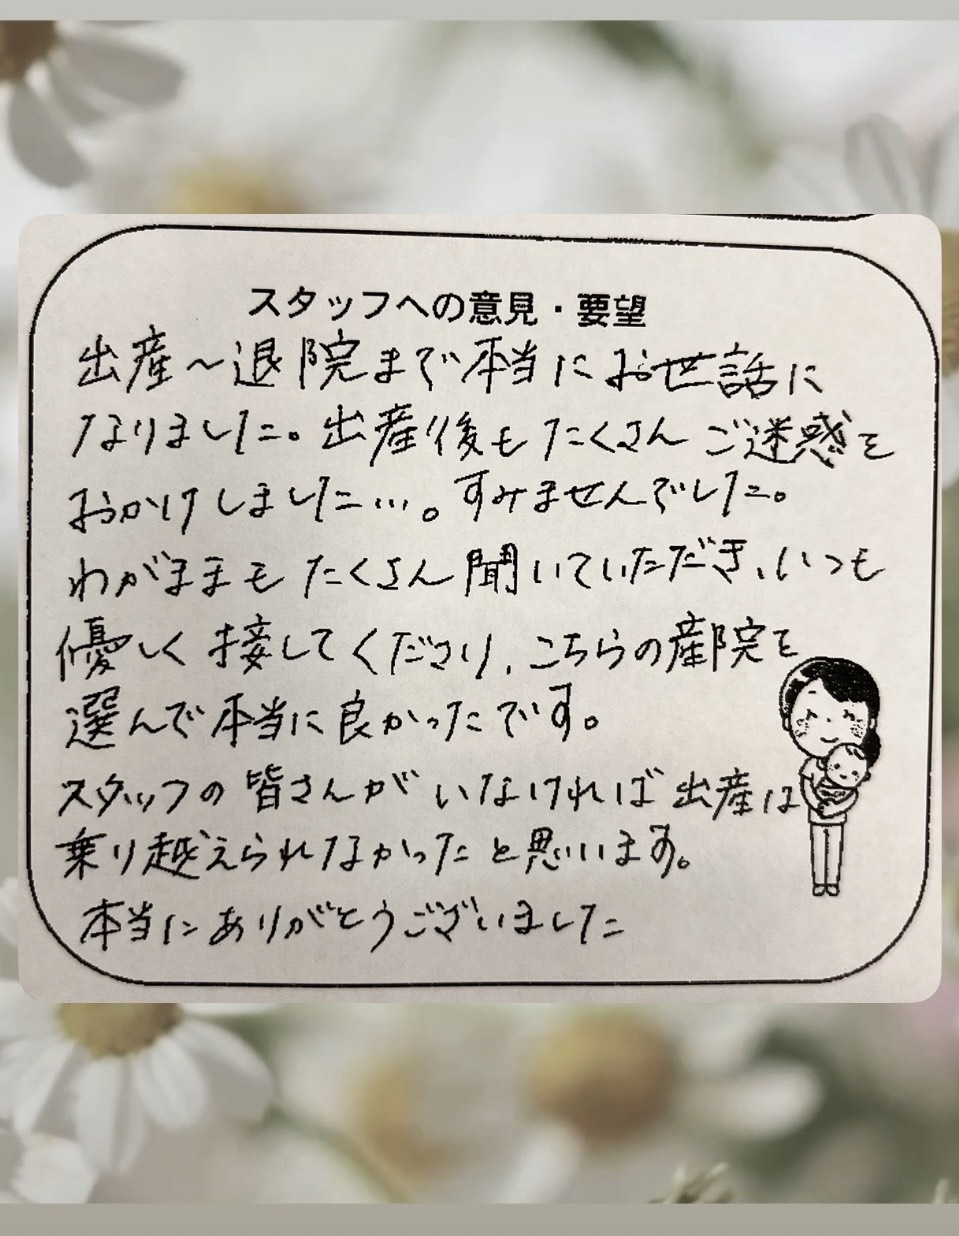 スタッフへの意見・要望
出産～退院まで本当にお世話に
なりました。出産後もたくさんご迷惑を
おかけしました…。すみませんでした。
わがままもたくさん聞いていただき、いつも
優しく接してくださり、こちらの産院を
選んで本当に良かったです。
スタッフの皆さんがいなければ出産は
乗り越えられなかったと思います。
本当にありがとうございました